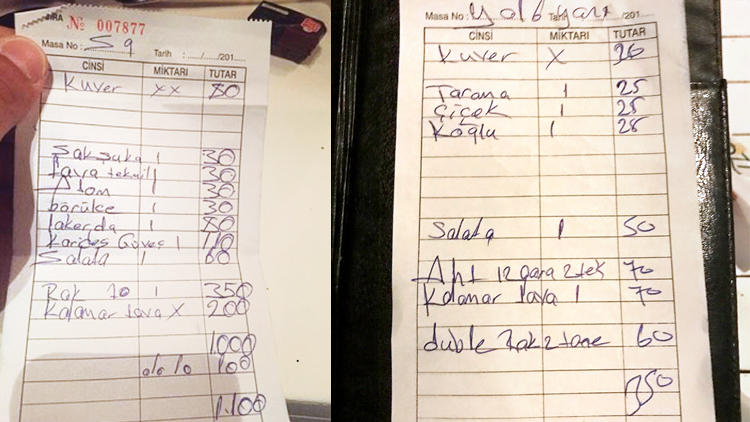 № 007877
Masa No : S 9 Tarih : ...../...../201.....
CİNSİ MİKTARI TUTAR
Kuver xx 80
Şakşuka 1 30
tava tekmil 1 30
Atom 1 30
börülce 1 30
lakerda 1 80
Karides Güveç 1 110
Salata 1 60
Rak 70 1 350
Kalamar tava X 200
1000
%10 100
1.100
Masa No : Tarih /201....
CİNSİ MİKTARI TUTAR
Kuver X 20
Tarama 1 25
Çiçek 1 25
Köğlu 1 25
Salata 1 50
Aht ızgara 2 tek 70
Kalamar tava 1 70
duble Rak 2 tane 60
350